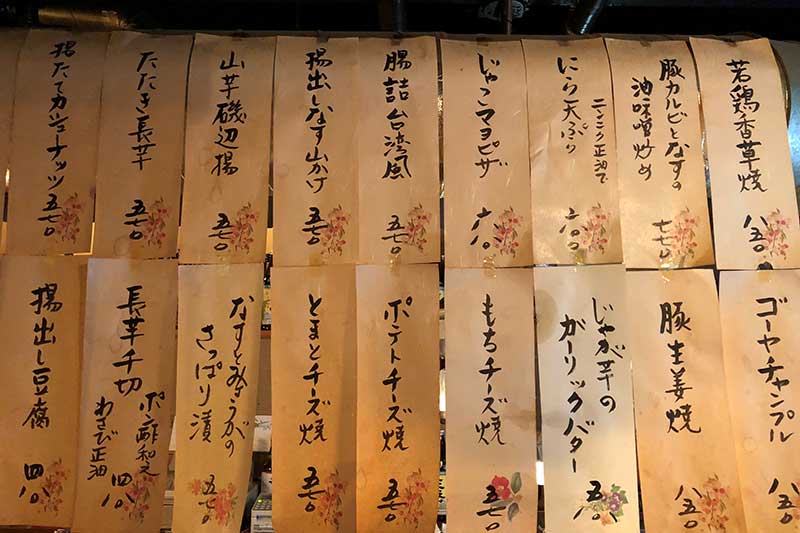 若鶏香草焼
八五〇
豚カルビとなすの
油味噌炒め
七七〇
にら天ぷら
ニンニク正油で
六〇〇
じゃこマヨピザ
六八〇
腸詰台湾風
五七〇
揚出しなす山かけ
五七〇
山芋磯辺揚
五七〇
たたき長芋
五七〇
揚たてカシューナッツ
五七〇
ゴーヤチャンプル
八五〇
豚生姜焼
八五〇
じゃが芋の
ガーリックバター
五八〇
もちチーズ焼
五七〇
ポテトチーズ焼
五七〇
とまとチーズ焼
五七〇
なすとみょうがの
さっぱり漬
五七〇
長芋千切
ポン酢和え
わさび正油
四八〇
揚出し豆腐
四八〇